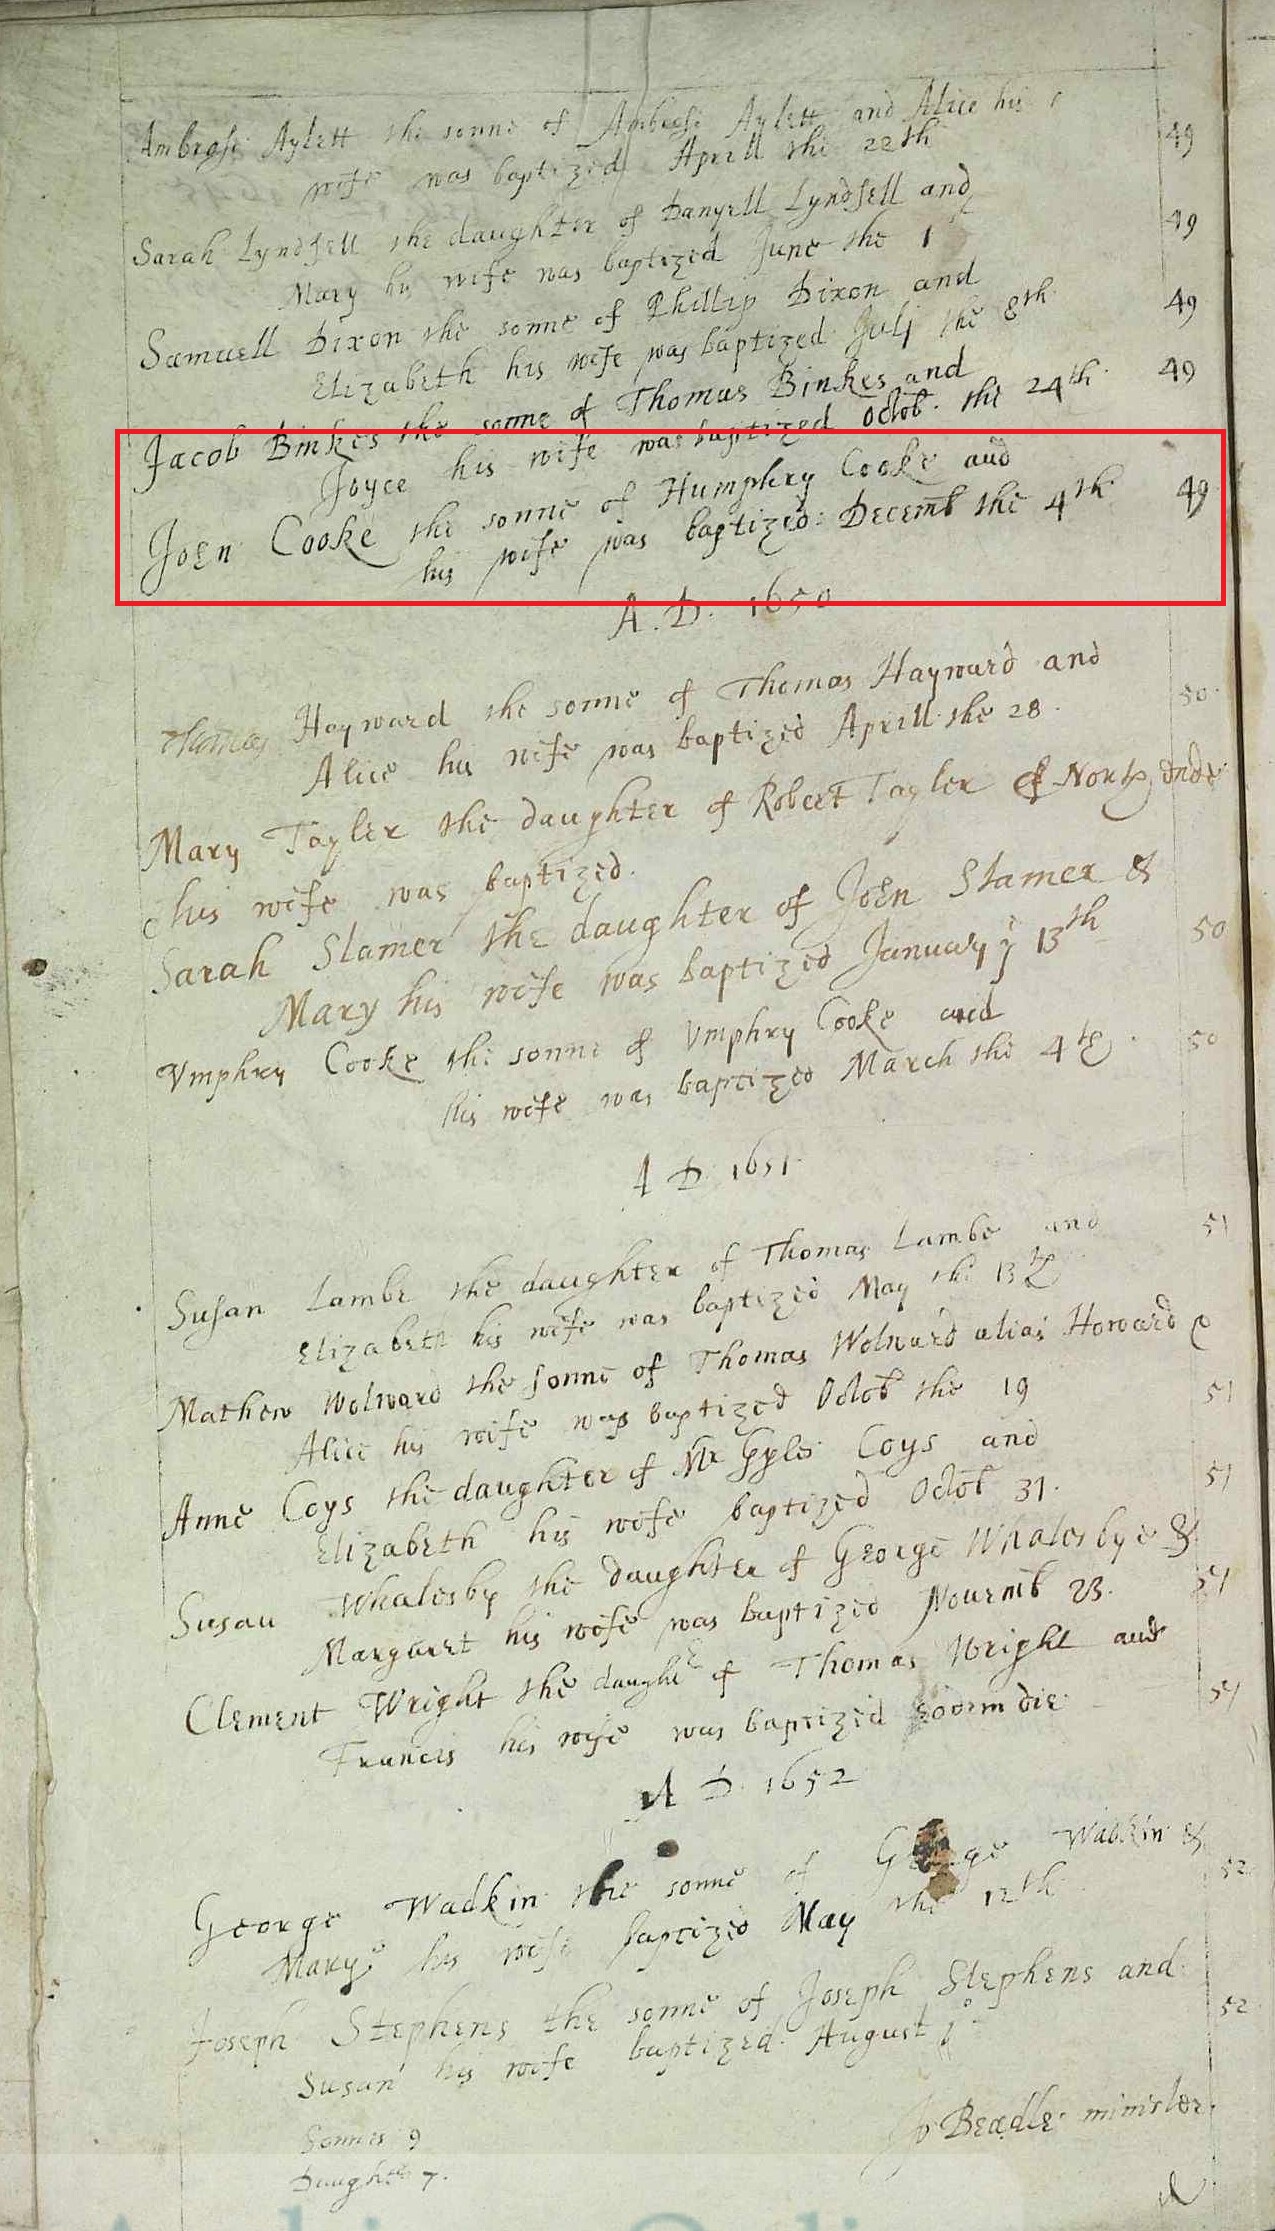 Ambrose Aylett the sonne of Ambrose Aylett and Alice his
wife was baptized Aprill the 22th 49
Sarah Lyndsell the daughter of Danyell Lyndsell and
Mary his wife was baptized June the 1 49
Samuell Dixon the sonne of Phillip Dixon and
Elizabeth his wife was baptized July the 8th 49
Jacob Binkes the sonne of Thomas Binkes and
Joyce his wife was baptized Octob. the 24th 49
John Cooke the sonne of Humphry Cooke and
his wife was baptized: Decemb the 4th 49
A. D. 1650
Thomas Hayward the sonne of Thomas Hayward and
Alice his wife was baptized Aprill the 28. 50
Mary Tayler the daughter of Robert Tayler of North ende
his wife was baptized.
Sarah Slamer the daughter of John Slamer &
Mary his wife was baptized January ye 13th 50
Vmphry Cooke the sonne of Vmphry Cooke and
his wife was baptized March the 4th. 50
A D 1651
Susan Lambe the daughter of Thomas Lambe and 51
Elizabeth his wife was baptized May the 13th
Mathew Wolward the sonne of Thomas Wolward alias Howard
Alice his wife was baptized Octob the 19 51
Anne Coys the daughter of Mr Gyles Coys and
Elizabeth his wife baptized Octob 31. 51
Susan Whalesby the daughter of George Whalesbye &
Margaret his wife was baptized Nouemb 23. 51
Clement Wright the daughter of Thomas Wright and
Francis his wife was baptized Eodem die 51
A D 1652
George Wadkin the sonne of George Wadkin &
Mary his wife baptized May the 12th 52
Joseph Stephens the sonne of Joseph Stephens and
Susan his wife baptized. August 1o 52
Jo Beadle minister.
Sonnes 9
Daught 7.